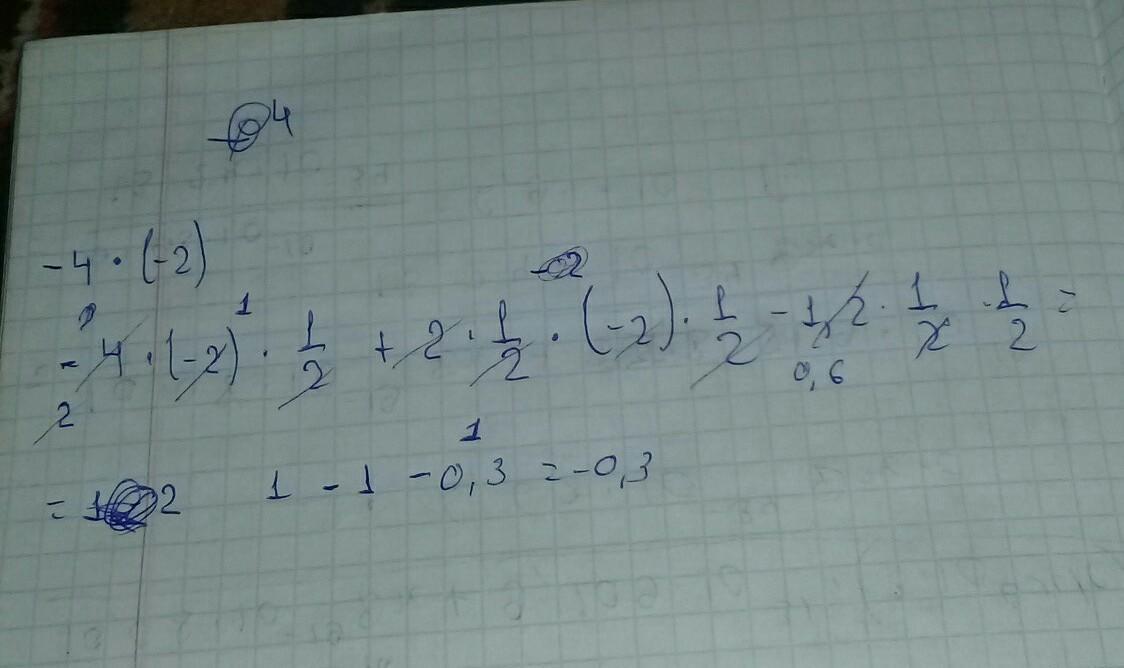 4
-4 · (-2)
1
- 4 · (-2) · 1/2 + 2 · 1/2 · (-2) · 1/2 - 1,2 · 1/2 · 1/2 =
2 0,6
1
= 1 2 1 - 1 - 0,3 = -0,3